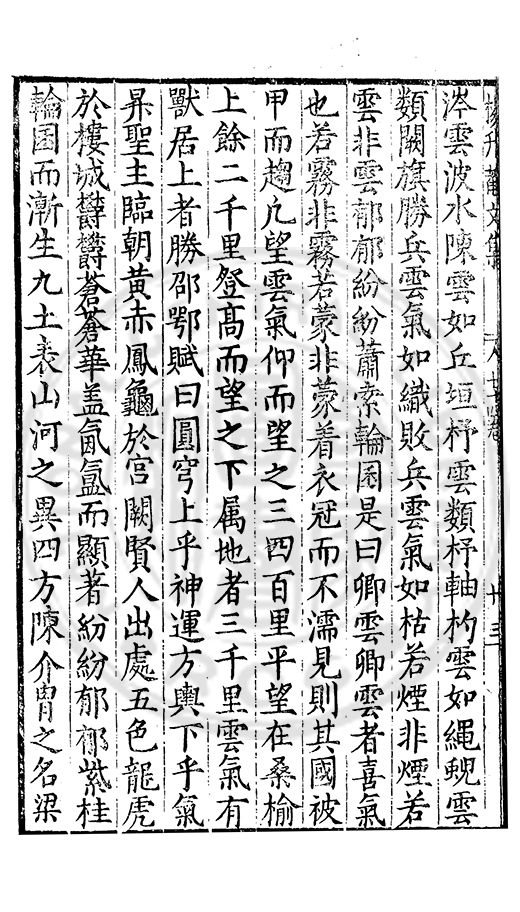 楊升菴文集 卷七十四 十三
涔雲波水陳雲如丘垣杼雲類杼軸杓雲如繩蜺雲
類闕旗勝兵雲氣如織敗兵雲氣如枯若煙非煙若
雲非雲郁郁紛紛蕭索輪囷是曰卿雲卿雲者喜氣
也若霧非霧若蒙非蒙着衣冠而不濡見則其國被
甲而趨凡望雲氣仰而望之三四百里平望在桑榆
上餘二千里登高而望之下属地者三千里雲氣有
獸居上者勝邵鄂賦曰圓穹上乎神運方輿下乎氣
昇聖主臨朝黄赤鳳龜於宮闕賢人出處五色龍虎
於樓城欝欝蒼蒼華盖氤氳而顯著紛紛郁郁紫桂
輪囷而漸生九土表山河之異四方陳介胄之名梁